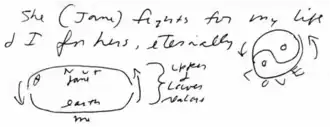 She (Jane) fights for my life
& I for hers, eternally
LOVE
Jane
upper
& Lower
realms
earth
me